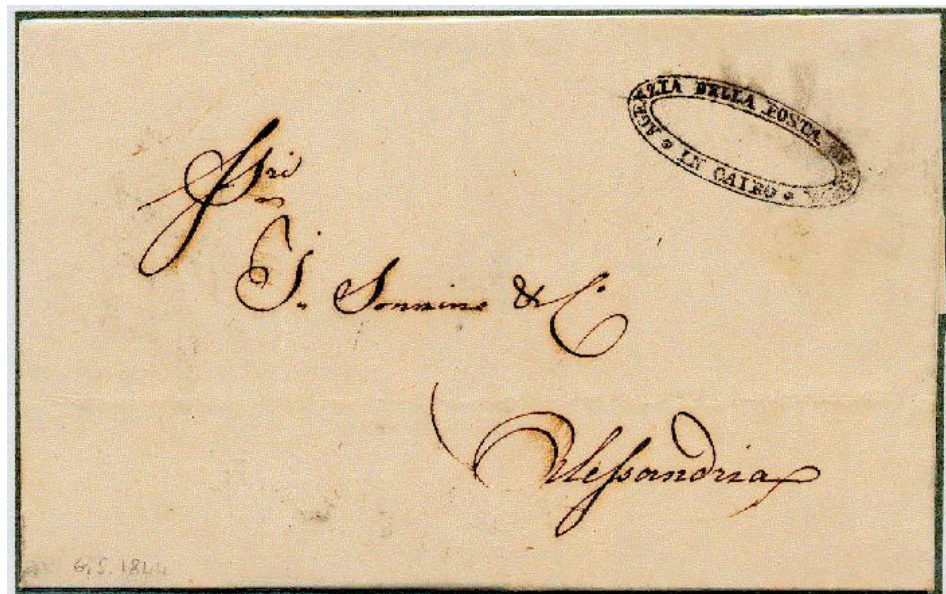 AGENZIA DELLA POSTA
IN CAIRO
Sri
S. Sonnino & Co
Alessandria
6.5.1844